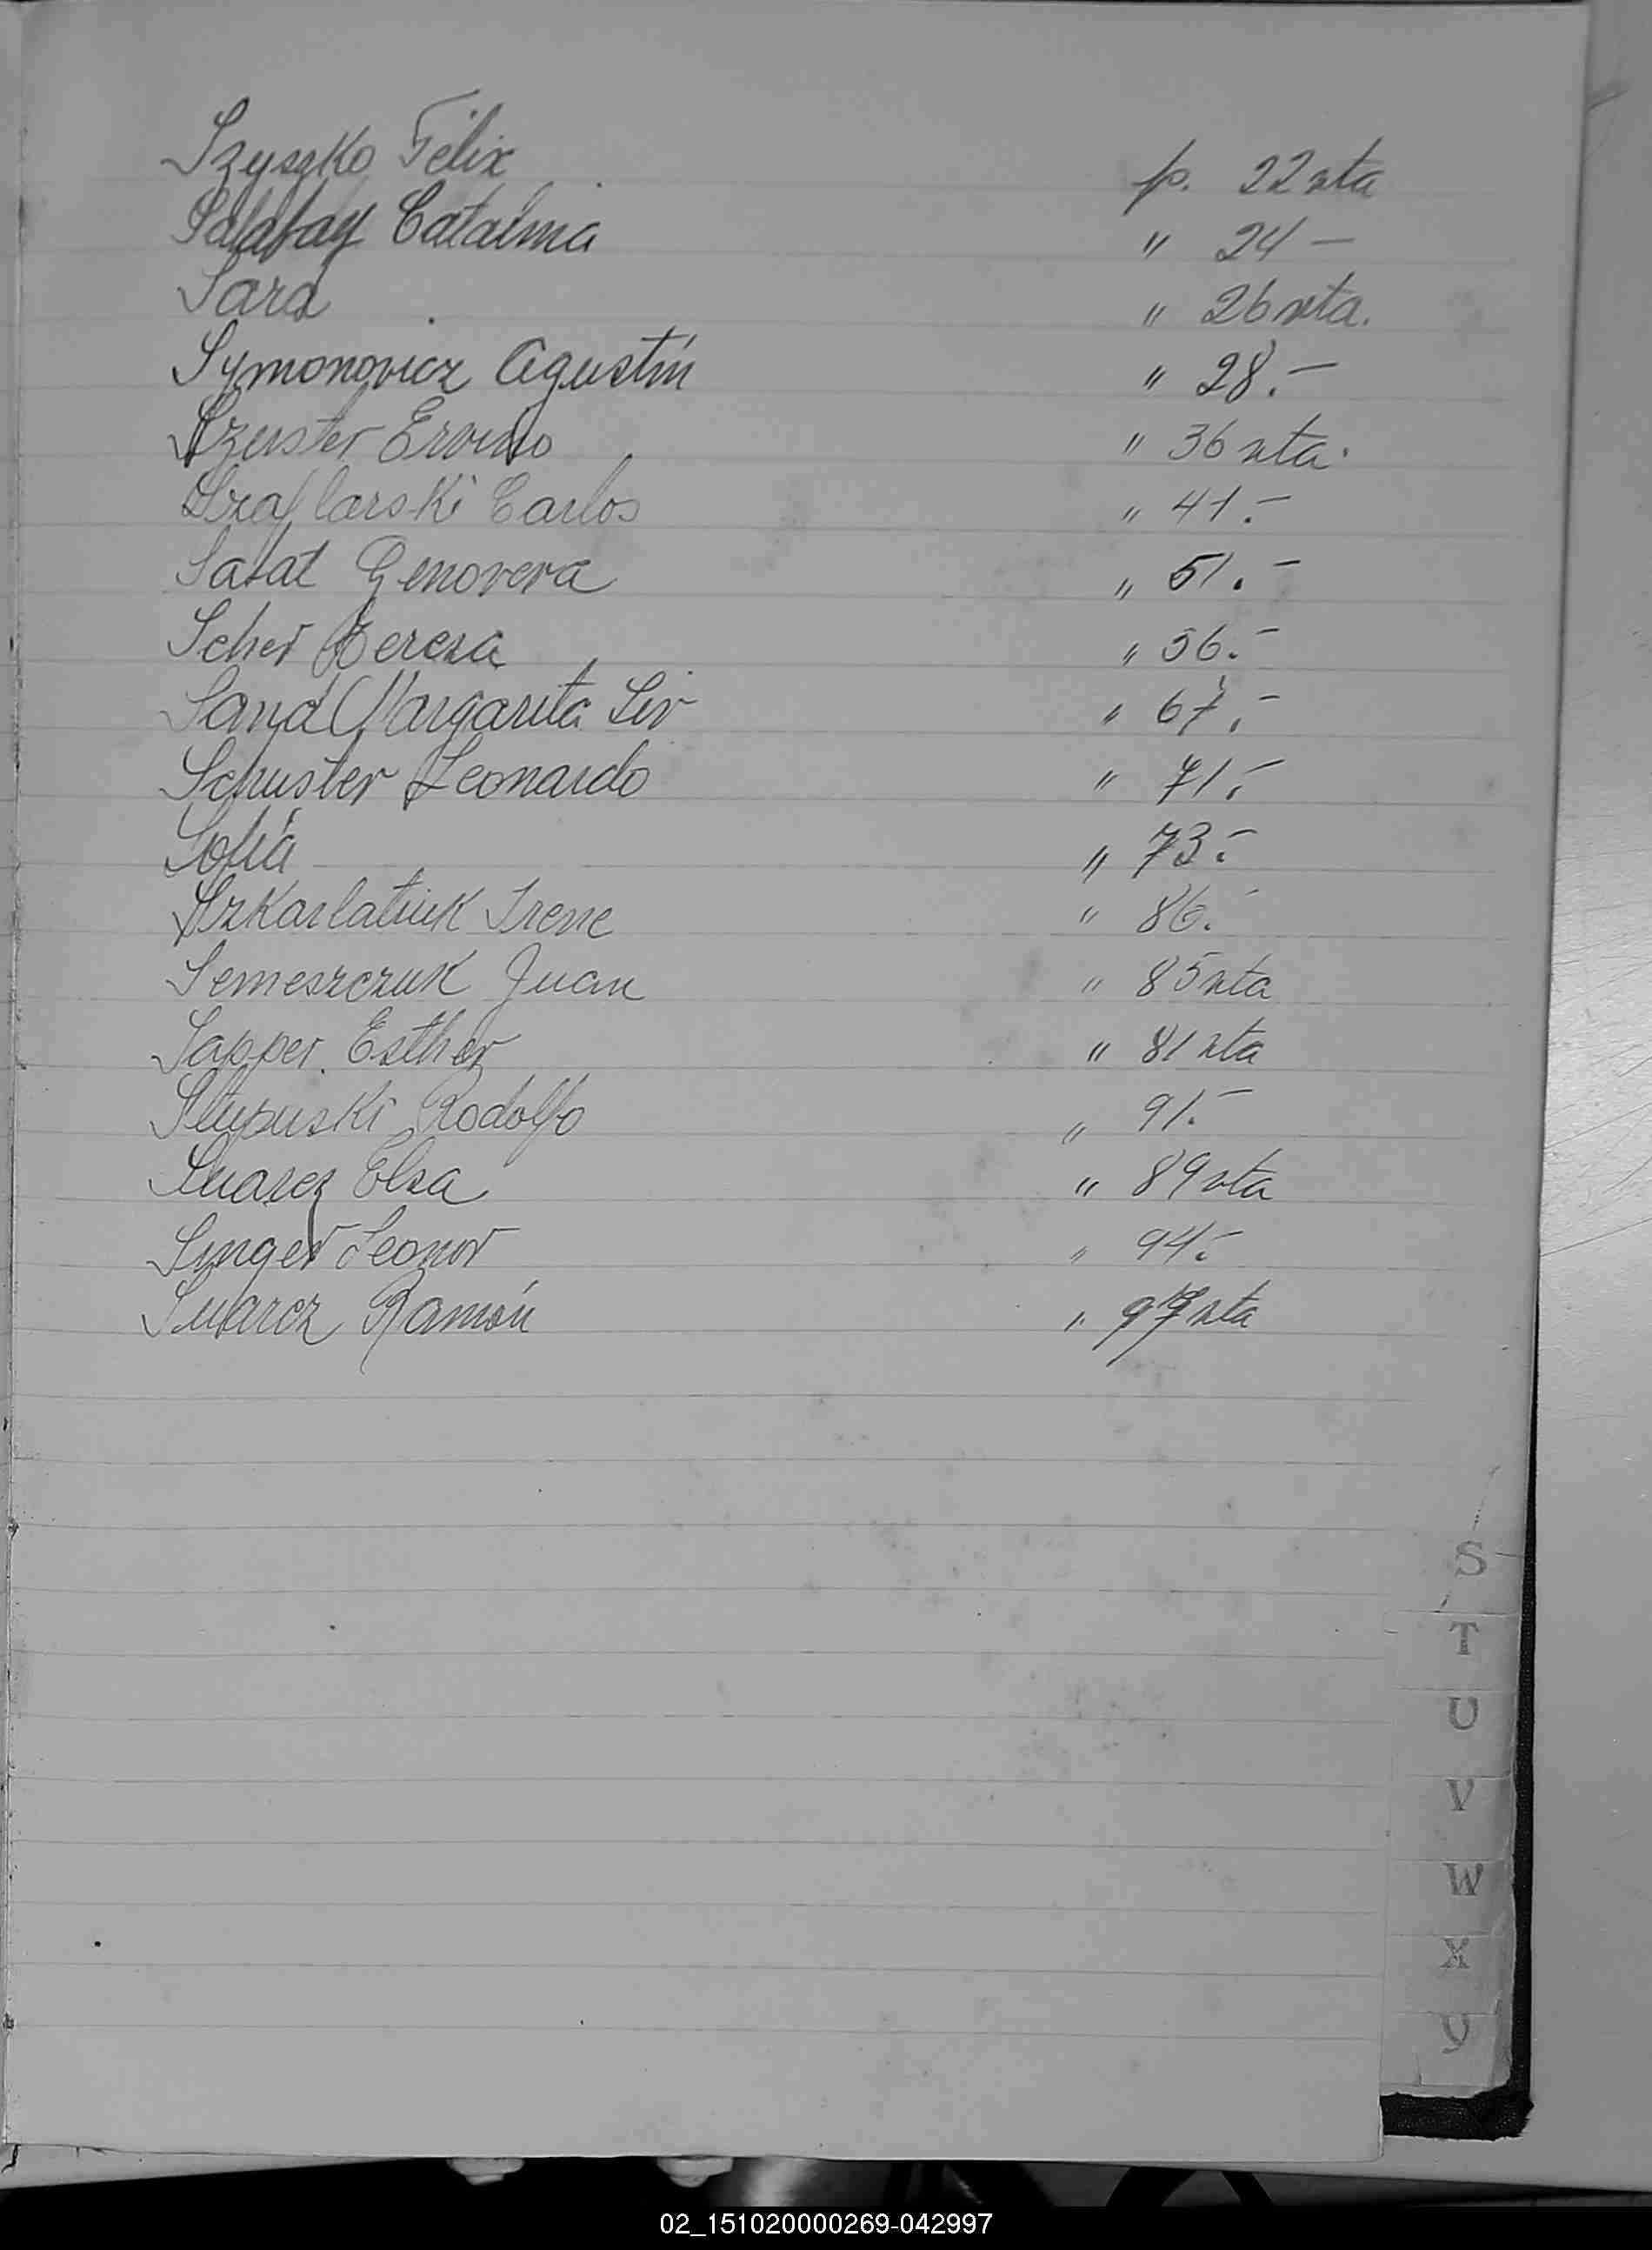 Szyszko Félix p. 22 vta
Salabay Catalina " 24 —
Sara " 26 vta.
Symonovicz Agustín " 28.—
Szuster Ervino " 36 vta.
Szaflarski Carlos " 41.—
Sabat Genoveva " 51.—
Scher Teresa " 56.—
Sand Margarita Liv " 67.—
Schuster Leonardo " 71.—
Sofía " 73.—
Szkarlatiuk Irene " 86.—
Semeszczuk Juan " 85 vta
Sapper Esther " 81 vta
Slupuski Rodolfo " 91.—
Suarez Elsa " 89 vta
Singer Leonor " 94.—
Suarez Ramón " 97 vta
S
T
U
V
W
X
Y
02_151020000269-042997